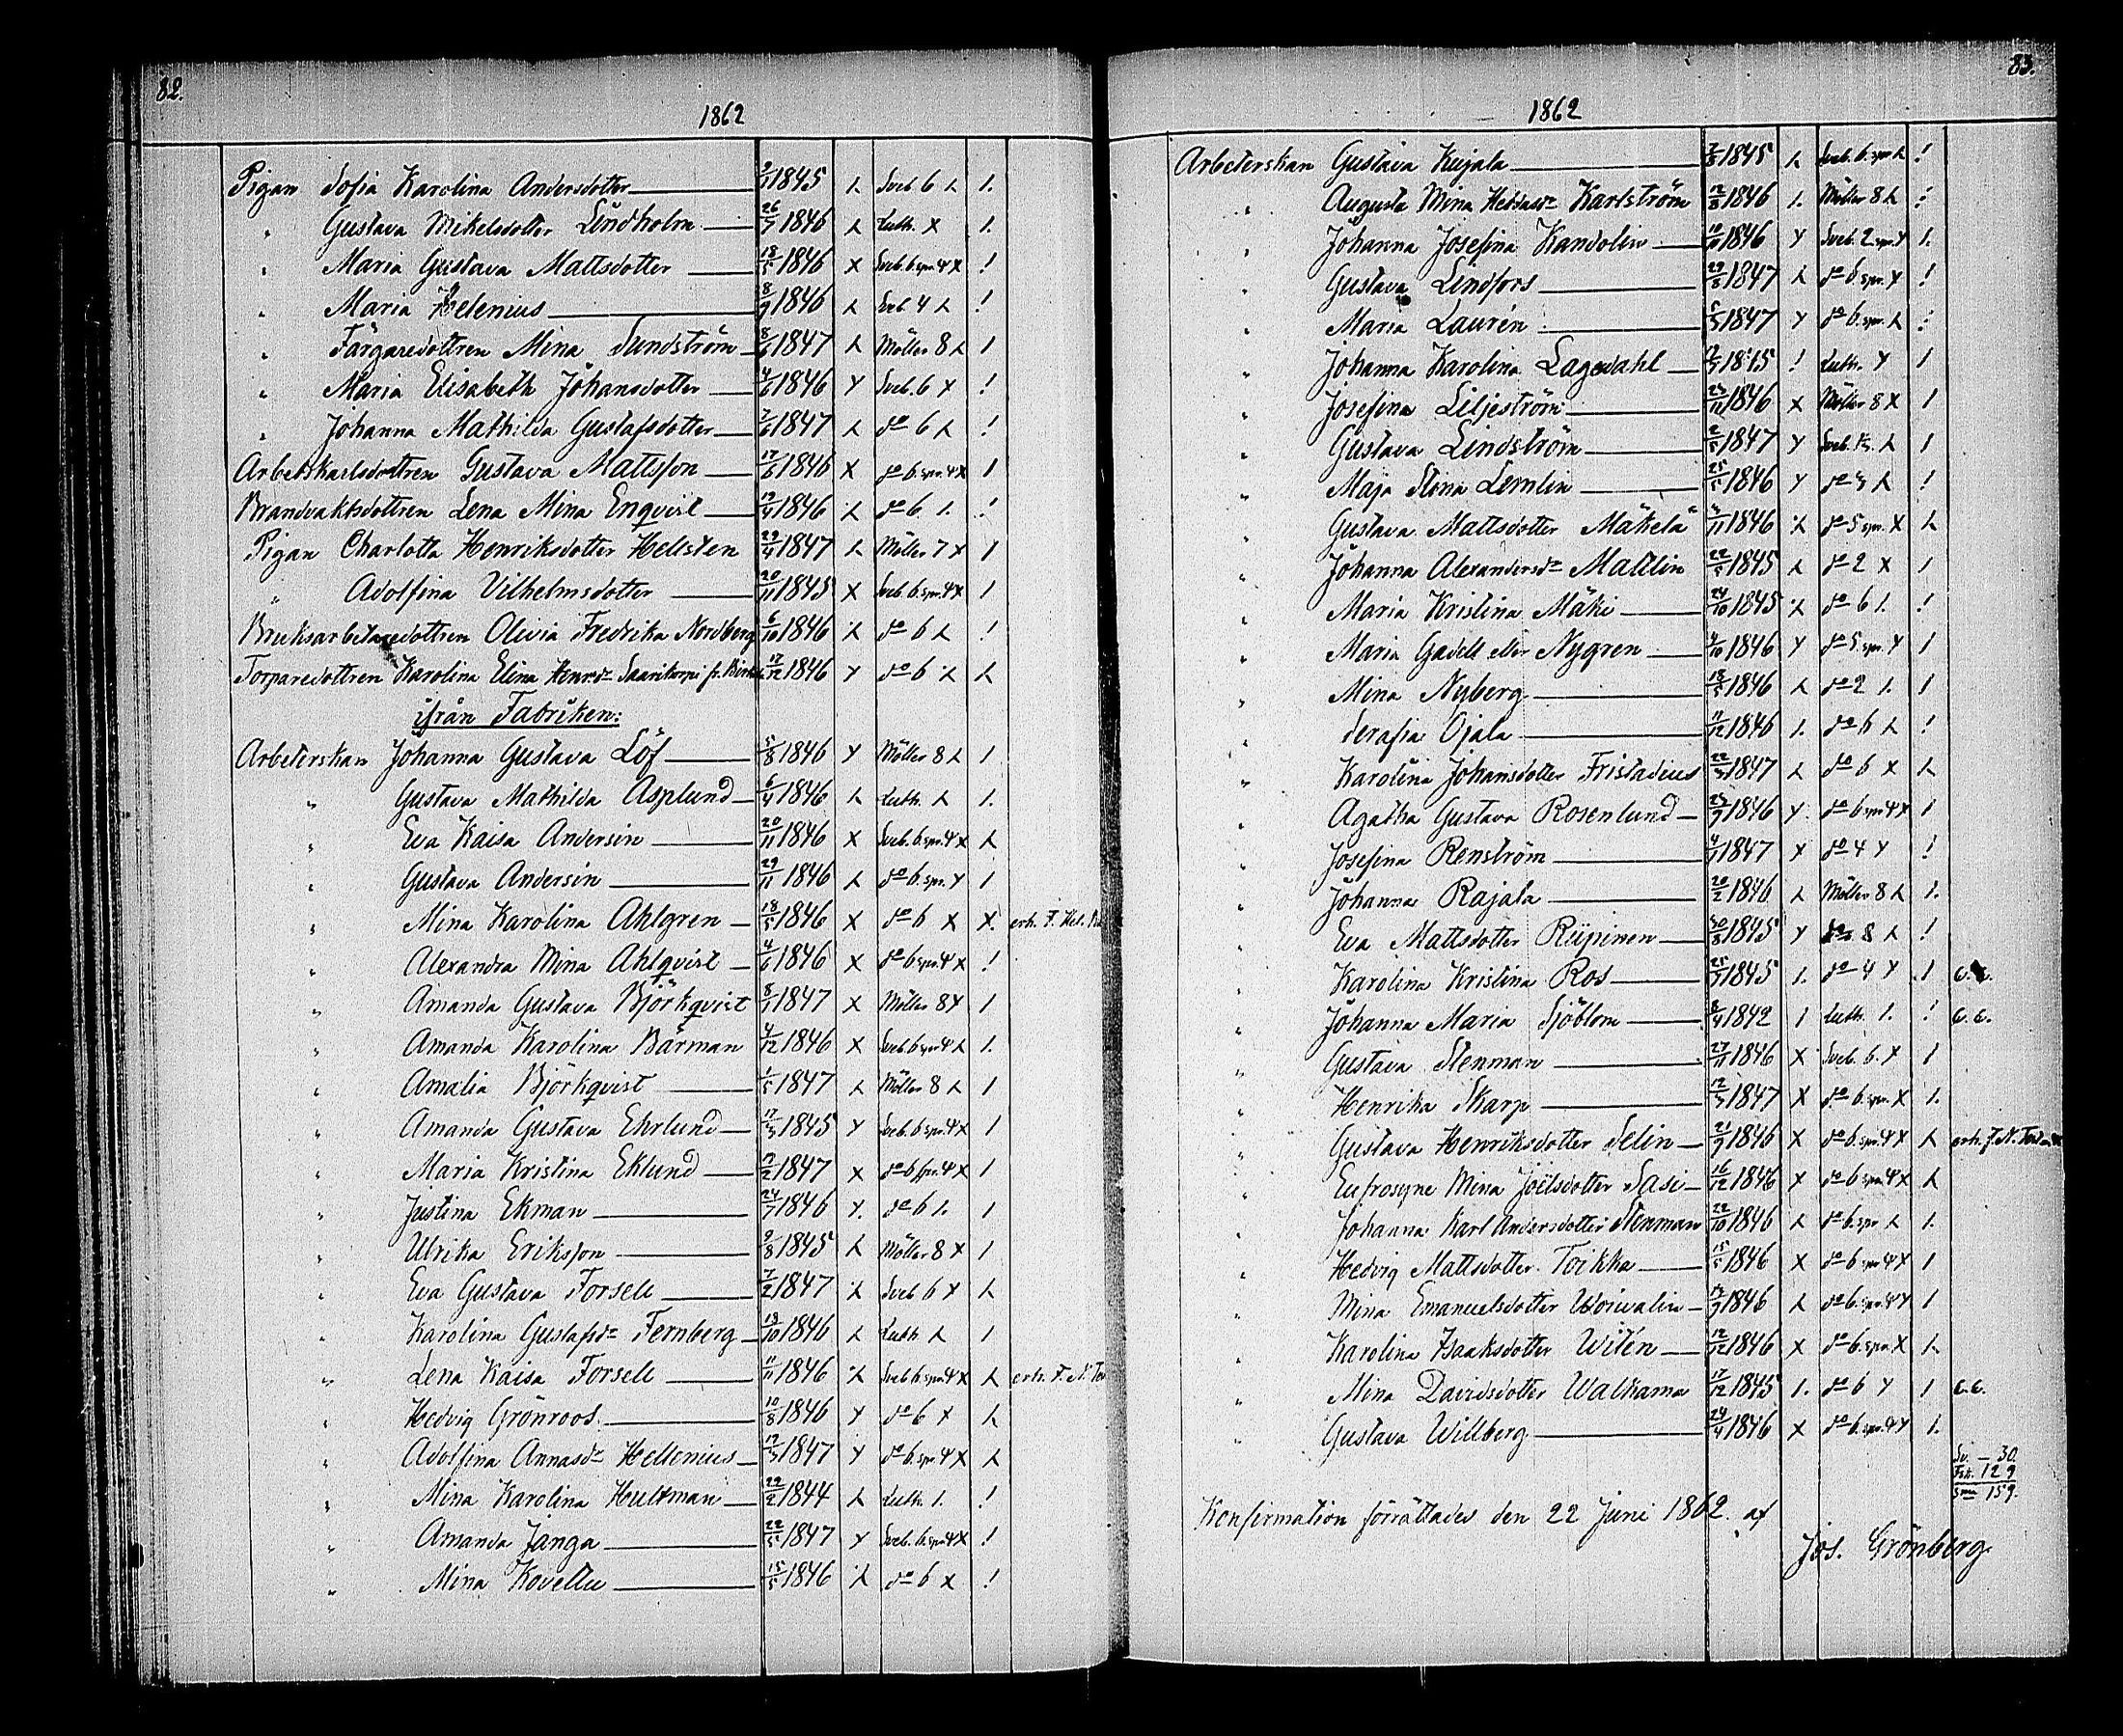 82.
1862
Pigan Sofia Karolina Andersdotter 9/11 1845 Sveb 6
" Gustava Mikelsdotter Lindholm 26/7 1846 Luth. X
" Maria Gustava Mattsdotter 18/5 1846 X Sveb. 6. spr. 4 X
" Maria Helenius 8/9 1846 Sveb 4
" Färgaredottren Mina Sundström 8/6 1847 Möller 8
" Maria Elisabeth Johansdotter 4/6 1846 Sveb. 6 X
" Johanna Mathilda Gustafsdotter 7/6 1847 do 6
Arbetskarlsdottren Gustava Mattsson 17/6 1846 X do 6. spr. 4 X
Brandvaktsdottren Lena Mina Enqvist 19/9 1846 do 6
Pigan Charlotta Henriksdotter Hellsten 29/4 1847 Möller 7 X
" Adolfina Vilhelmsdotter 20/11 1845 X Sveb. 6. spr. 4 X
Bruksarbetaredottren Olivia Fredrika Nordberg 6/10 1846 do 6
Torparedottren Karolina Elina Henrsdr Saarikorpi 17/12 1846 do 6
ifrån Fabriken:
Arbeterskan Johanna Gustava Löf 5/8 1846 Möller 8
" Gustava Mathilda Asplund 6/4 1846 Luth.
" Eva Kaisa Andersin 20/11 1846 X Sveb. 6. spr. 4 X
" Gustava Andersin 29/11 1846 do 6. spr.
" Mina Karolina Ahlgren 18/5 1846 X do 6 X X.
" Alexandra Mina Ahlqvist 4/6 1846 X do 6 spr. 4 X
" Amanda Gustava Björkqvist 8/1 1847 X Möller 8
" Amanda Karolina Bärman 4/12 1846 X Sveb. 6 spr 4
" Amalia Björkqvist 1/5 1847 Möller 8
" Amanda Gustava Ehrlund 17/3 1845 Sveb. 6 spr. 4 X
" Maria Kristina Eklund 1847 X do 6 spr. 4 X
" Justina Ekman 24/7 1846 do 6
" Ulrika Eriksson 9/8 1845 Möller 8 X
" Eva Gustava Forsell 7/2 1847 Sveb 6
" Karolina Gustafsdr Fernberg 19/10 1846 Luth
" Lena Kaisa Forsell 11/11 1846 Sveb 6. spr. 4 X
" Hedvig Grönroos 10/8 1846 do 6 X
" Adolfina Annasdr Hellenius 17/3 1847 do 6. spr. 4 X
" Mina Karolina Hultman 22/2 1844 Luth.
" Amanda Janga 22/5 1847 Sveb. 6. spr 4 X
" Mina Kovettu 15/5 1846 do 6 X
83.
1862
Arbeterskan Gustava Kujala 1845 Sveb. 6. spr
" Augusta Mina Hedvasdr Karlström 12/8 1846 Möller 8
" Johanna Josefina Kandolin 10/10 1846 Sveb. 2. spr.
" Gustava Lindfors 1847 do 6 spr.
" Maria Laurén 1847 do 6. spr.
" Johanna Karolina Lagerdahl 1845 Luth.
" Josefina Liljeström 23/12 1846 X Möller 8 X
" Gustava Lindström 2/5 1847 Sveb.
" Maja Stina Lemlin 25/5 1846 do
" Gustava Mattsdotter Mäkelä 1846 do 5 spr. X
" Johanna Alexandersdr Mattlin 22/5 1845 do 2 X
" Maria Kristina Mäki 24/10 1845 do 6
" Maria Gadelt eller Nygren 4/10 1846 do 5. spr.
" Mina Nyberg 18/5 1846 do 2
" Serafia Ojala 11/12 1846 do 6
" Karolina Johansdotter Fristadius 22/3 1847 do 6 X
" Agatha Gustava Rosenlund 1846 do 6 spr 4 X
" Josefina Renström 4/1 1847 do 4
" Johanna Rajala 20/2 1846 Möller 8
" Eva Mattsdotter Riipinen 30/8 1845 8
" Karolina Kristina Ros 1845 do 4
" Johanna Maria Sjöblom 8/4 1842 Luth. e.e.
" Gustava Stenman 27/11 1846 X Sveb. 6. X
" Henrika Skarp 12/3 1847 X do 6. spr. X
" Gustava Henriksdotter Selin 21/9 1846 X do 6. spr. 4 X
" Eufrosyne Mina Joelsdotter Sasi 16/12 1846 do 6 spr 4 X
" Johanna Karl Andersdotter Stenman 22/10 1846 do 6. spr
" Hedvig Mattsdotter Toikka 15/5 1846 X do 6 spr 4 X
" Mina Emanuelsdotter Woivalin 1846 do 6. spr. 4
" Karolina Isaaksdotter Witén 12/12 1846 X do 6. spr. X
" Mina Davidsdotter Walkama 17/12 1845 do 6 e.e.
" Gustava Willberg 24/4 1846 X do 6. spr. 4
Sv. — 30.
Fsk. 129
Sma 159.
Konfirmation förrättades den 22 Juni 1862. af
Jos. Grönberg.